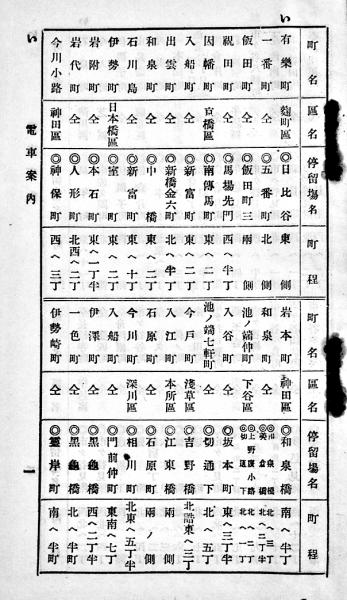 い
町名 區名 停留場名 町程
有樂町 麴町區 ◎日比谷 東側
一番町 仝 ◎五番町 北側
飯田町 仝 ◎飯田町三 南側
祝田町 仝 ◎馬場先門 西へ半丁
因幡町 京橋區 ◎南傳馬町 東へ二丁
入船町 仝 ◎新富町 東へ二丁
出雲町 仝 ◎新橋金六 北へ半丁
和泉町 仝 ◎中橋 東へ二丁
石川島 仝 ◎新富町 東へ十丁
伊勢町 日本橋區 ◎室町 東へ二丁
岩附町 仝 ◎本石町 東へ一丁半
岩代町 仝 ◎人形町 北西へ二丁
今川小路 神田區 ◎神保町 西へ三丁
町名 區名 停留場名 町程
岩本町 神田區 ◎和泉橋 南へ半丁
和泉町 仝 ◎和泉橋 北へ三丁
◎美倉橋 北へ二丁半
池ノ端仲町 下谷區 ◎上野廣小路 北へ二丁
◎切通下 北へ一丁
入谷町 仝 ◎坂本町 東へ三丁半
池ノ端七軒町 仝 ◎切通下 北へ五丁
今戸町 淺草區 ◎吉野橋 北詰東へ三丁
入江町 本所區 ◎江東橋 南側
石原町 仝 ◎石原町 兩ノ側
今川町 深川區 ◎相川町 北東へ五丁半
入船町 仝 ◎門前仲町 東南へ七丁
伊澤町 仝 ◎黑龜橋 西へ二丁半
一色町 仝 ◎黑龜橋 北へ半丁
伊勢崎町 仝 ◎靈岸町 南へ半町
い
電車案内
一